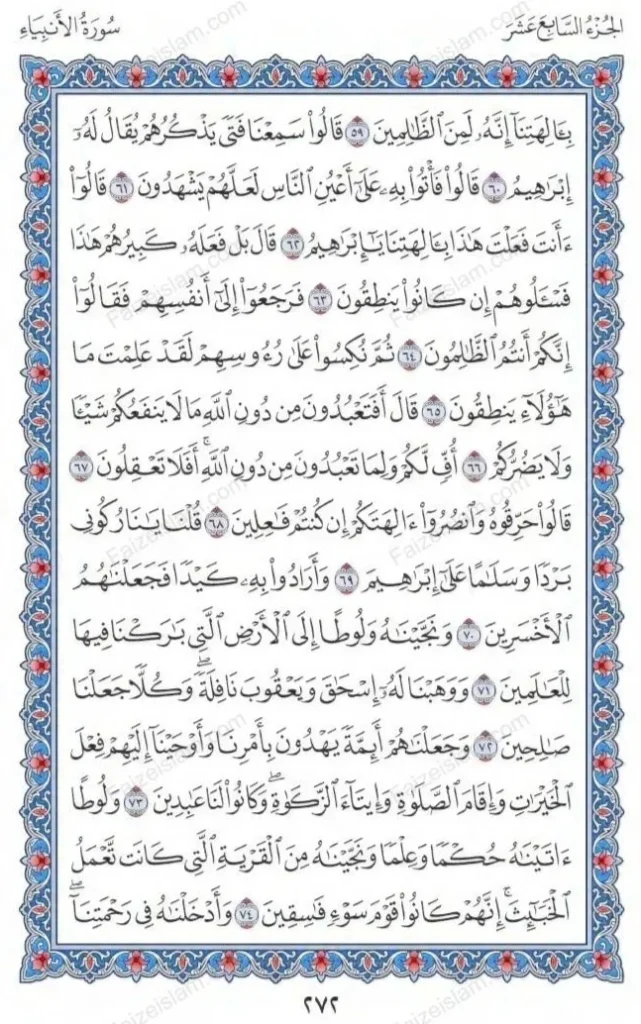 سُورَةُ الأَنبِيَاء
الجُزْءُ السَّابِعَ عَشَرَ
بِـَٔالِهَتِنَآ إِنَّهُۥ لَمِنَ ٱلظَّٰلِمِينَ ٥٩ قَالُوا۟ سَمِعْنَا فَتًى يَذْكُرُهُمْ يُقَالُ لَهُۥٓ
إِبْرَٰهِيمُ ٦٠ قَالُوا۟ فَأْتُوا۟ بِهِۦ عَلَىٰٓ أَعْيُنِ ٱلنَّاسِ لَعَلَّهُمْ يَشْهَدُونَ ٦١ قَالُوٓا۟
ءَأَنتَ فَعَلْتَ هَٰذَا بِـَٔالِهَتِنَا يَٰٓإِبْرَٰهِيمُ ٦٢ قَالَ بَلْ فَعَلَهُۥ كَبِيرُهُمْ هَٰذَا
فَسْـَٔلُوهُمْ إِن كَانُوا۟ يَنطِقُونَ ٦٣ فَرَجَعُوٓا۟ إِلَىٰٓ أَنفُسِهِمْ فَقَالُوٓا۟
إِنَّكُمْ أَنتُمُ ٱلظَّٰلِمُونَ ٦٤ ثُمَّ نُكِسُوا۟ عَلَىٰ رُءُوسِهِمْ لَقَدْ عَلِمْتَ مَا
هَٰٓؤُلَآءِ يَنطِقُونَ ٦٥ قَالَ أَفَتَعْبُدُونَ مِن دُونِ ٱللَّهِ مَا لَا يَنفَعُكُمْ شَيْـًٔا
وَلَا يَضُرُّكُمْ ٦٦ أُفٍّ لَّكُمْ وَلِمَا تَعْبُدُونَ مِن دُونِ ٱللَّهِ ۚ أَفَلَا تَعْقِلُونَ ٦٧
قَالُوا۟ حَرِّقُوهُ وَٱنصُرُوٓا۟ ءَالِهَتَكُمْ إِن كُنتُمْ فَٰعِلِينَ ٦٨ قُلْنَا يَٰنَارُ كُونِى
بَرْدًا وَسَلَٰمًا عَلَىٰٓ إِبْرَٰهِيمَ ٦٩ وَأَرَادُوا۟ بِهِۦ كَيْدًا فَجَعَلْنَٰهُمُ
ٱلْأَخْسَرِينَ ٧٠ وَنَجَّيْنَٰهُ وَلُوطًا إِلَى ٱلْأَرْضِ ٱلَّتِى بَٰرَكْنَا فِيهَا
لِلْعَٰلَمِينَ ٧١ وَوَهَبْنَا لَهُۥٓ إِسْحَٰقَ وَيَعْقُوبَ نَافِلَةً ۖ وَكُلًّا جَعَلْنَا
صَٰلِحِينَ ٧٢ وَجَعَلْنَٰهُمْ أَئِمَّةً يَهْدُونَ بِأَمْرِنَا وَأَوْحَيْنَآ إِلَيْهِمْ فِعْلَ
ٱلْخَيْرَٰتِ وَإِقَامَ ٱلصَّلَوٰةِ وَإِيتَآءَ ٱلزَّكَوٰةِ ۖ وَكَانُوا۟ لَنَا عَٰبِدِينَ ٧٣ وَلُوطًا
ءَاتَيْنَٰهُ حُكْمًا وَعِلْمًا وَنَجَّيْنَٰهُ مِنَ ٱلْقَرْيَةِ ٱلَّتِى كَانَت تَّعْمَلُ
ٱلْخَبَٰٓئِثَ ۗ إِنَّهُمْ كَانُوا۟ قَوْمَ سَوْءٍ فَٰسِقِينَ ٧٤ وَأَدْخَلْنَٰهُ فِى رَحْمَتِنَآ ۖ
٢٧٢
Faizeislam.com